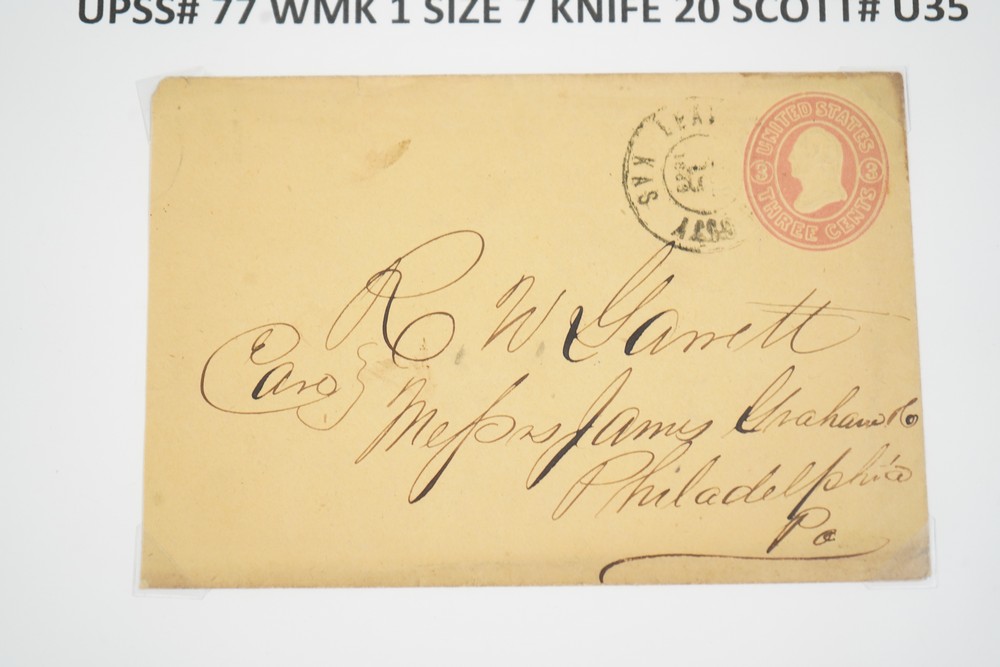 UPSS# 77 WMK 1 SIZE 7 KNIFE 20 SCOTT# U35
UNITED STATES
3 3
THREE CENTS
KAS
R W Garrett
Care
Messrs James Graham & Co
Philadelphia
Pa